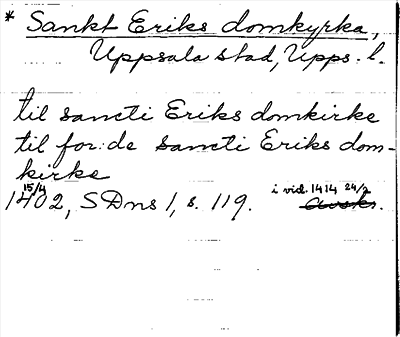 * Sankt Eriks domkyrka,
Uppsala stad, Upps. l.
til sancti Eriks domkirke
til for:de sancti Eriks dom-
kirke
15/4 1402, SDns 1, s. 119. i vid. 1414 24/2 avskr.